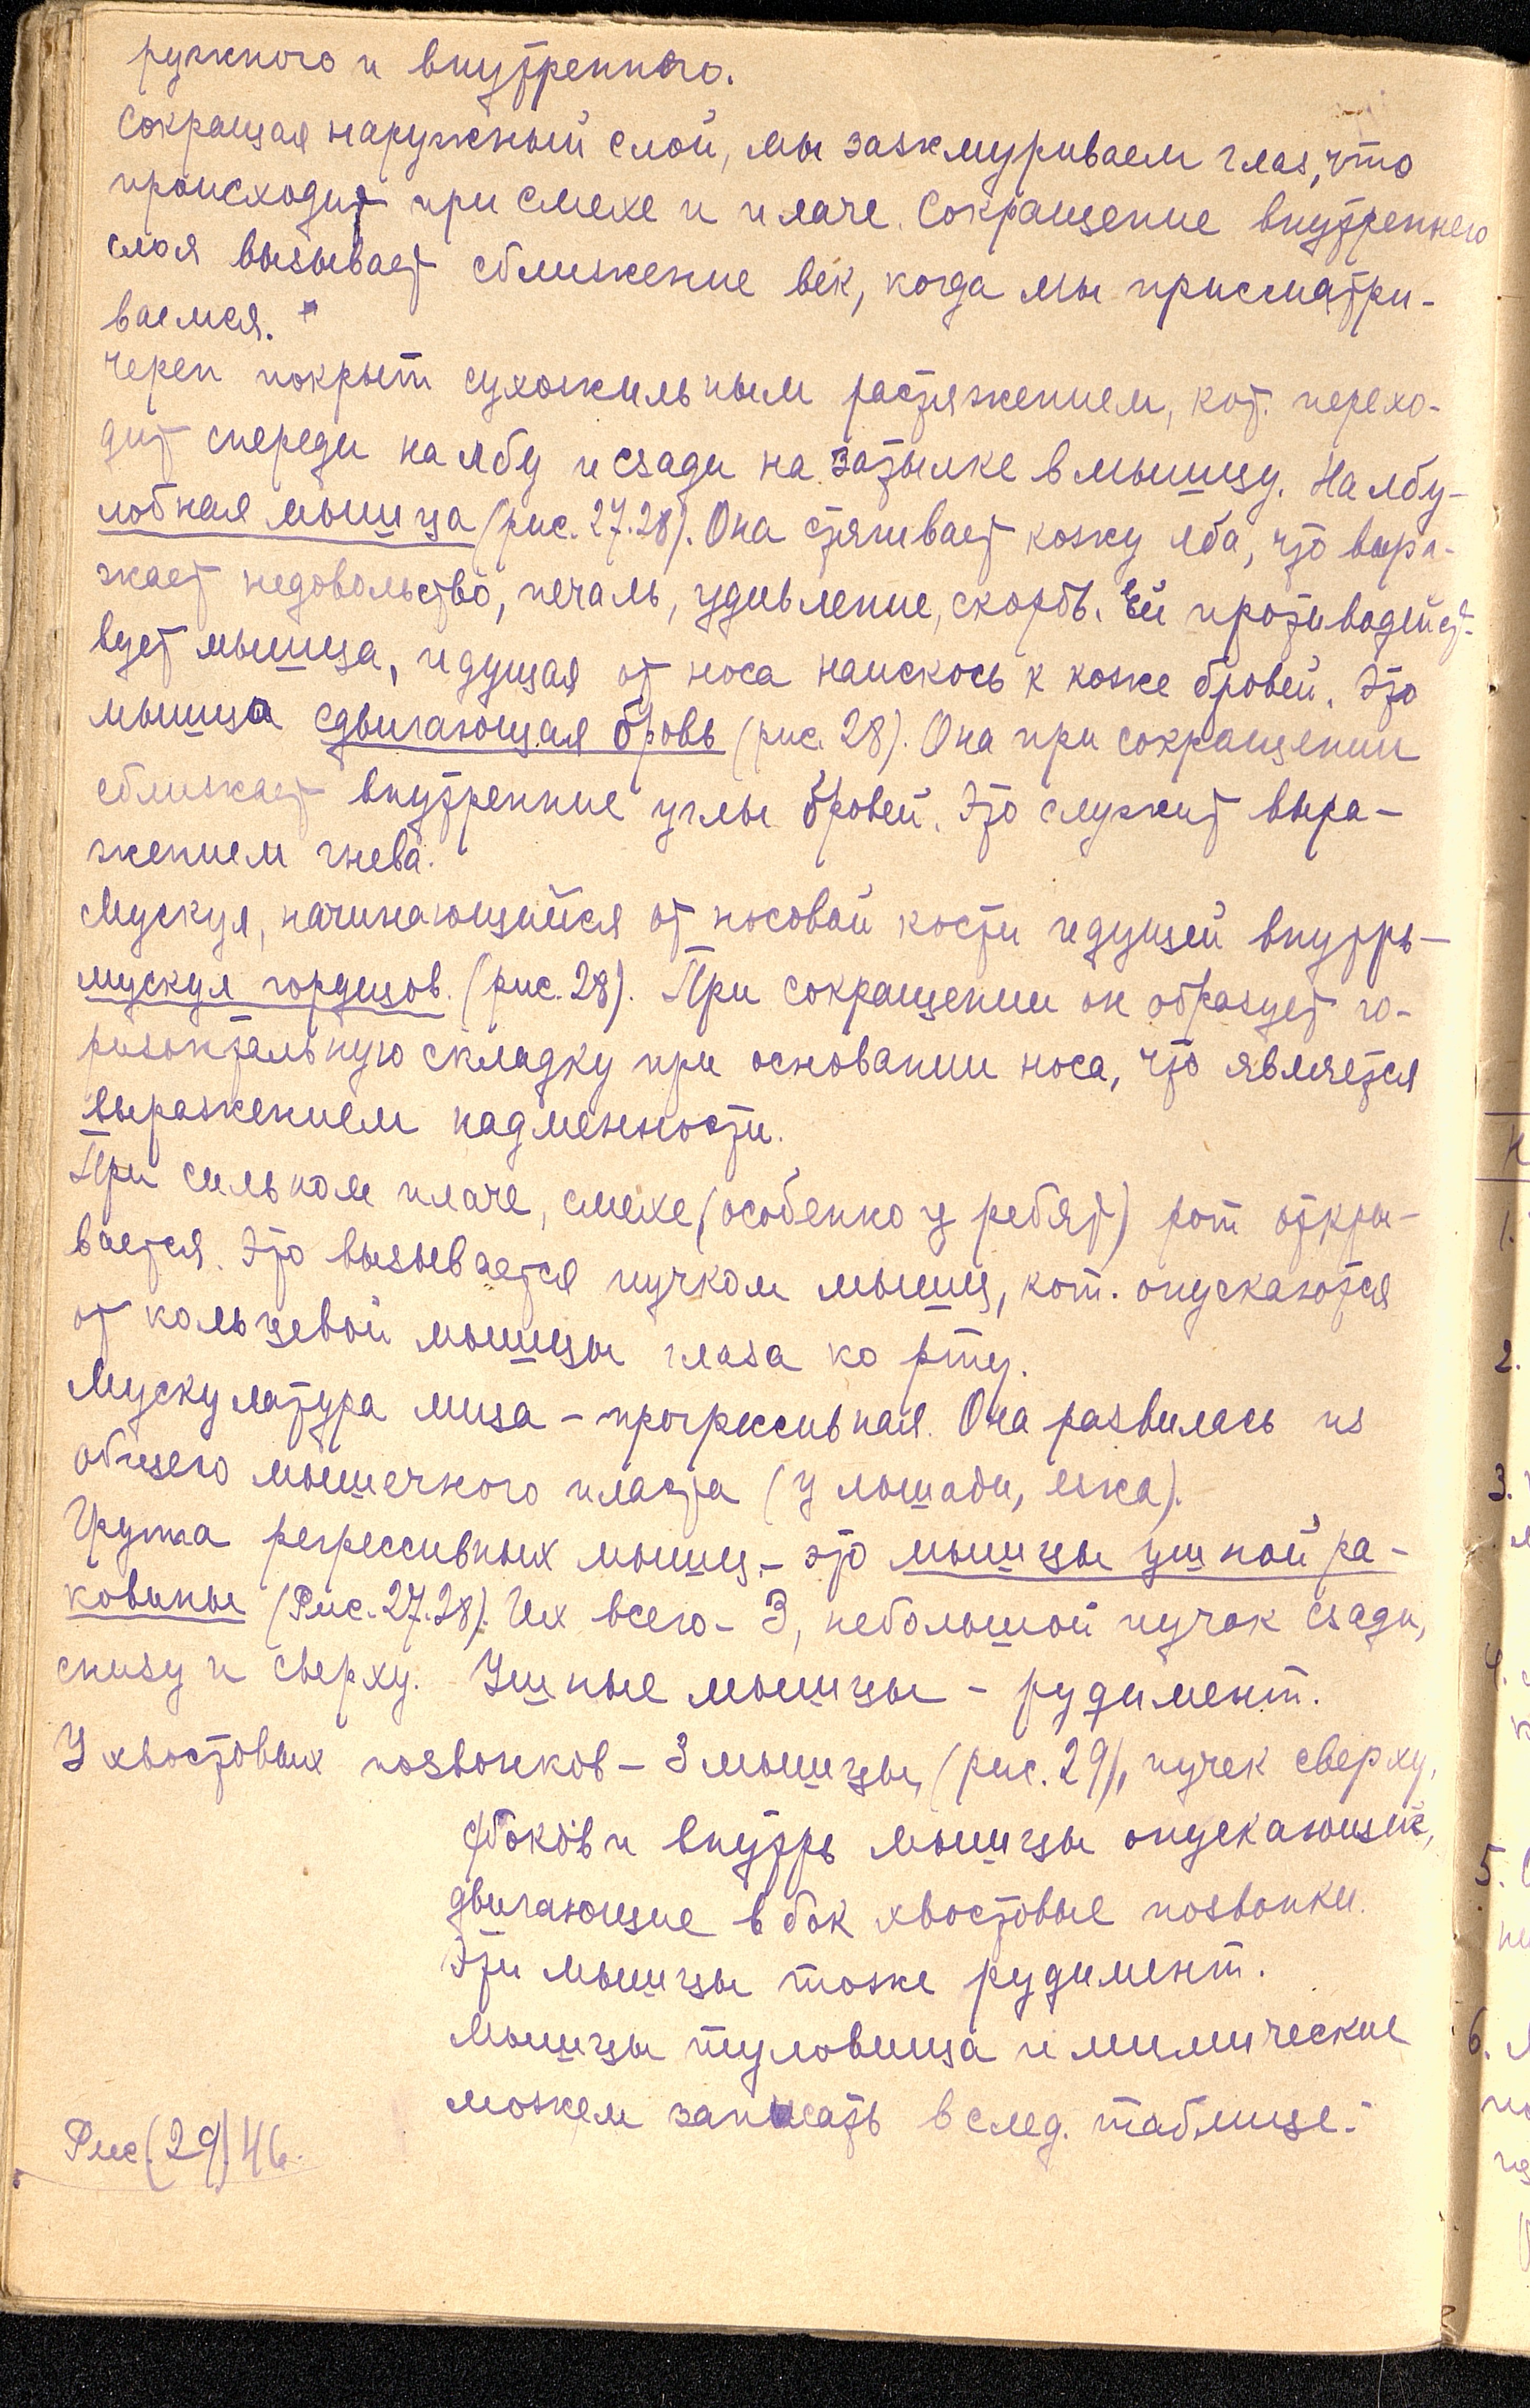 ружного и внутреннего.
Сокращая наружный слой, мы зажмуриваем глаз, что
происходит при смехе и плаче. Сокращение внутреннего
слоя вызывает сближение век, когда мы присматри-
ваемся.
Череп покрыт сухожильным растяжением, кот. перехо-
дит спереди на лбу и сзади на затылке в мышцу. На лбу-
лобная мышца (рис. 27.28). Она стягивает кожу лба, что выра-
жает недовольство, печаль, удивление, скорбь. Ей противодейст-
вует мышца, идущая от носа наискось к коже бровей. Это
мышца сдвигающая бровь (рис. 28). Она при сокращении
сближает внутренние углы бровей. Это служит выра-
жением гнева.
Мускул, начинающийся от носовой кости идущей внутрь-
мускул гордецов. (рис. 28). При сокращении он образует го-
ризонтальную складку при основании носа, что является
выражением надменности.
При сильном плаче, смехе, (особенно у ребят) рот откры-
вается. Это вызывается пучком мышц, кот. опускаются
от кольцевой мышцы глаза ко рту.
Мускулатура лица - прогрессивная. Она развилась из
общего мышечного пласта (у лошади, ежа).
Группа регрессивных мышц - это мышцы ушной ра-
ковины (Рис. 27.28). Их всего - 3, небольшой пучок сзади,
снизу и сверху. Ушные мышцы - рудимент.
У хвостовых позвонков - 3 мышцы, (рис. 29), пучек сверху,
с боков и внутрь мышцы опускающие,
двигающие в бок хвостовые позвонки.
Эти мышцы тоже рудимент.
Мышцы туловища и мимические
можем записать в след. таблице:
Рис. (29) 46.
1.
2.
3.
4.
5.
6.